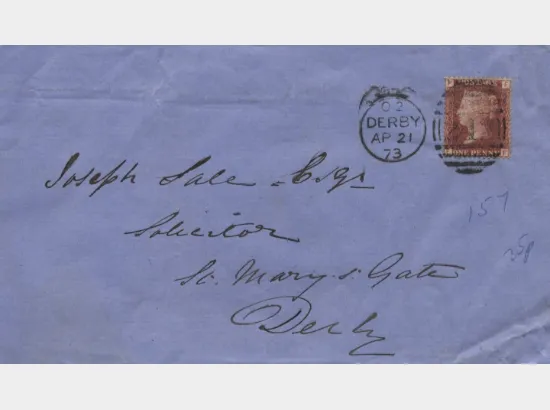 02
DERBY
AP 21
73
ONE PENNY
Joseph Sale Esqr
Solicitor
St. Mary's Gate
Derby
157